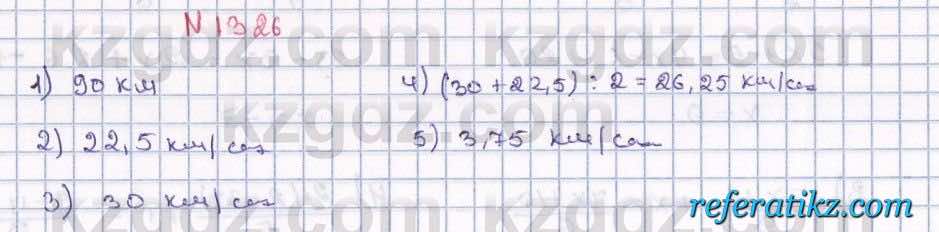 N 1326
1) 90 км
2) 22,5 км/саг
3) 30 км/саг
4) (30 + 22,5) : 2 = 26,25 км/саг
5) 3,75 км/саг
kzgdz.com
referatikz.com